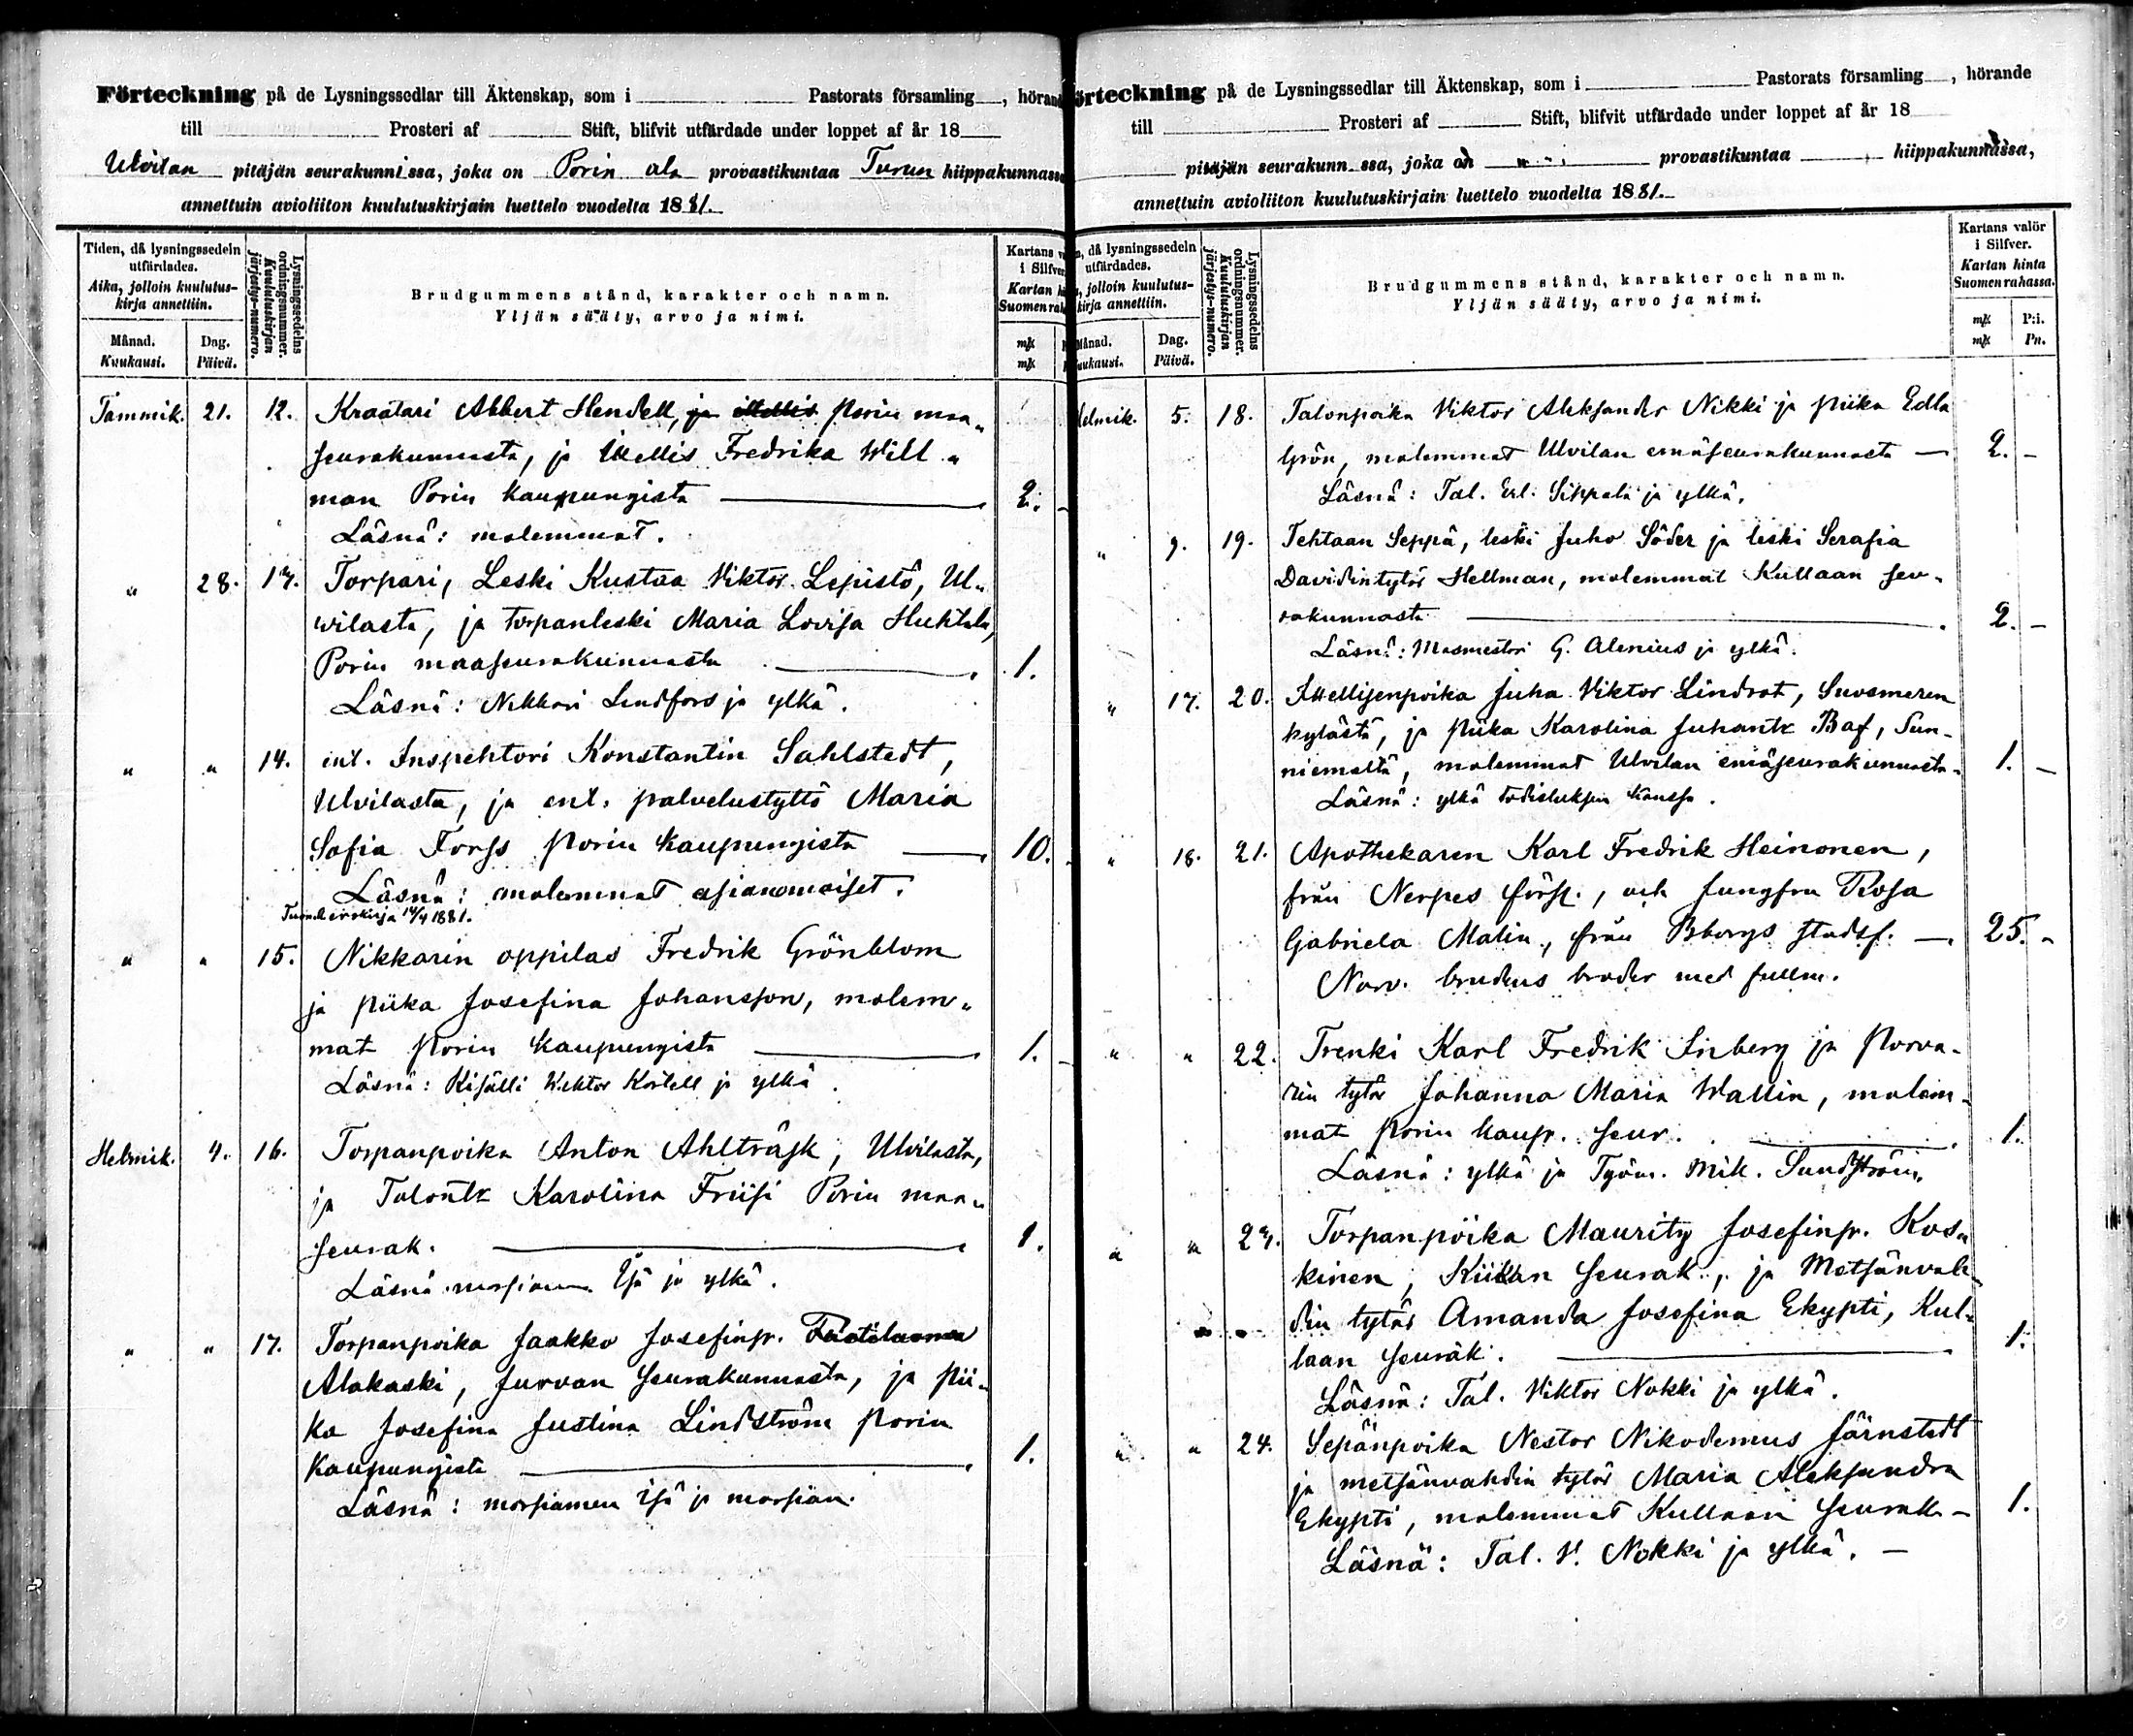 Förteckning på de Lysningssedlar till Äktenskap, som i Pastorats församling, hörand
till Prosteri af Stift, blifvit utfärdade under loppet af år 18
Ulvilan pitäjän seurakunnissa, joka on Porin ala provastikuntaa Turun hiippakunnassa
annettuin avioliiton kuulutuskirjain luettelo vuodelta 1881.
Tiden, då lysningssedeln utfärdades.
Aika, jolloin kuulutus-kirja annettiin.
Månad. Kuukausi.
Dag. Päivä.
Lysningssedelns ordningsnummer.
Kuulutuskirjan järjestys-numero.
Brudgummens stånd, karakter och namn.
Yljän sääty, arvo ja nimi.
Kartans v
i Silfver
Kartan hi
Suomen rah
mk
mk
Tammik. 21. 12. Kraatari Albert Hendell, ja itellis Porin maa„
seurakunnasta, ja Itellis Fredrika Will„
man Porin kaupungista 2. -
Läsnä: molemmat.
" 28. 13. Torpari, Leski Kustaa Viktor Lepistö, Ul„
wilasta, ja torpanleski Maria Lovisa Huhtala,
Porin maaseurakunnasta 1.
Läsnä: Nikkari Lindfors ja ylkä.
" " 14. ent. Inspehtori Konstantin Sahlstedt,
Ulvilasta, ja ent. palvelustyttö Maria
Sofia Forss Porin kaupungista 10. -
Läsnä: molemmat asianomaiset.
14/4 1881.
" " 15. Nikkarin oppilas Fredrik Grönblom
ja piika Josefina Johansson, molem„
mat Porin kaupungista 1. -
Läsnä: Kisälli Viktor Kortell ja ylkä.
Helmik. 4. 16. Torpanpoika Anton Ahlträsk, Ulvilasta,
ja Talontr Karolina Friisi Porin maa„
seurak. 1.
Läsnä morsiamen Isä ja ylkä.
" " 17. Torpanpoika Jaakko Josefinp.
Alakaski, Jurvan seurakunnasta, ja pii„
ka Josefina Justina Lindström Porin
kaupungista 1.
Läsnä: morsiamen isä ja morsian.
örteckning på de Lysningssedlar till Äktenskap, som i Pastorats församling, hörande
till Prosteri af Stift, blifvit utfärdade under loppet af år 18
pitäjän seurakunn ssa, joka on " provastikuntaa hiippakunnassa,
annettuin avioliiton kuulutuskirjain luettelo vuodelta 1881.
n, då lysningssedeln utfärdades.
, jolloin kuulutus-kirja annettiin.
Månad. uukausi.
Dag. Päivä.
Lysningssedelns ordningsnummer.
Kuulutuskirjan järjestys-numero.
Brudgummens stånd, karakter och namn.
Yljän sääty, arvo ja nimi.
Kartans valör i Silfver.
Kartan hinta Suomen rahassa.
mk P:i.
mk Pn.
Helmik. 5. 18. Talonpoika Viktor Aleksander Nikki ja piika Edla
Grön, molemmat Ulvilan emäseurakunnasta 2. -
Läsnä: Tal. Erl. Sippola ja ylkä.
" 9. 19. Tehtaan Seppä, leski Juho Söder ja leski Serafia
Davidintytär Hellman, molemmat Kullaan seu„
rakunnasta 2. -
Läsnä: Masmestri G. Alenius ja ylkä.
" 17. 20. Itellisenpoika Juha Viktor Lindrot, Suosmeren
kylästä, ja piika Karolina Juhantr Baf, Sun-
niemeltä, molemmat Ulvilan emäseurakunnasta 1. -
Läsnä: ylkä todistuksen kanssa.
" 18. 21. Apothekaren Karl Fredrik Heinonen,
från Nerpes förs., och Jungfru Rosa
Gabriela Malin, från Bborgs stadsf. 25. -
Narv. brudens broder med fullm.
" " 22. Trenki Karl Fredrik Inberg ja Porva-
rin tytär Johanna Maria Wallin, molem-
mat Porin kaup. seur. 1.
Läsnä: ylkä ja Työm. Mik. Sundström.
" " 23. Torpanpoika Mauritz Josefinp. Kos„
kinen, Kiikan Seurak., ja Metsänvah-
din tytär Amanda Josefina Ekypti, Kul-
laan seurak. 1.
Läsnä: Tal. Viktor Nokki ja ylkä.
" " 24. Sepänpoika Nestor Nikodemus Järnstedt
ja metsänvahdin tytär Maria Aleksandra
Ekypti, molemmat Kullaan seurak 1.
Läsnä: Tal. V. Nokki ja ylkä. -